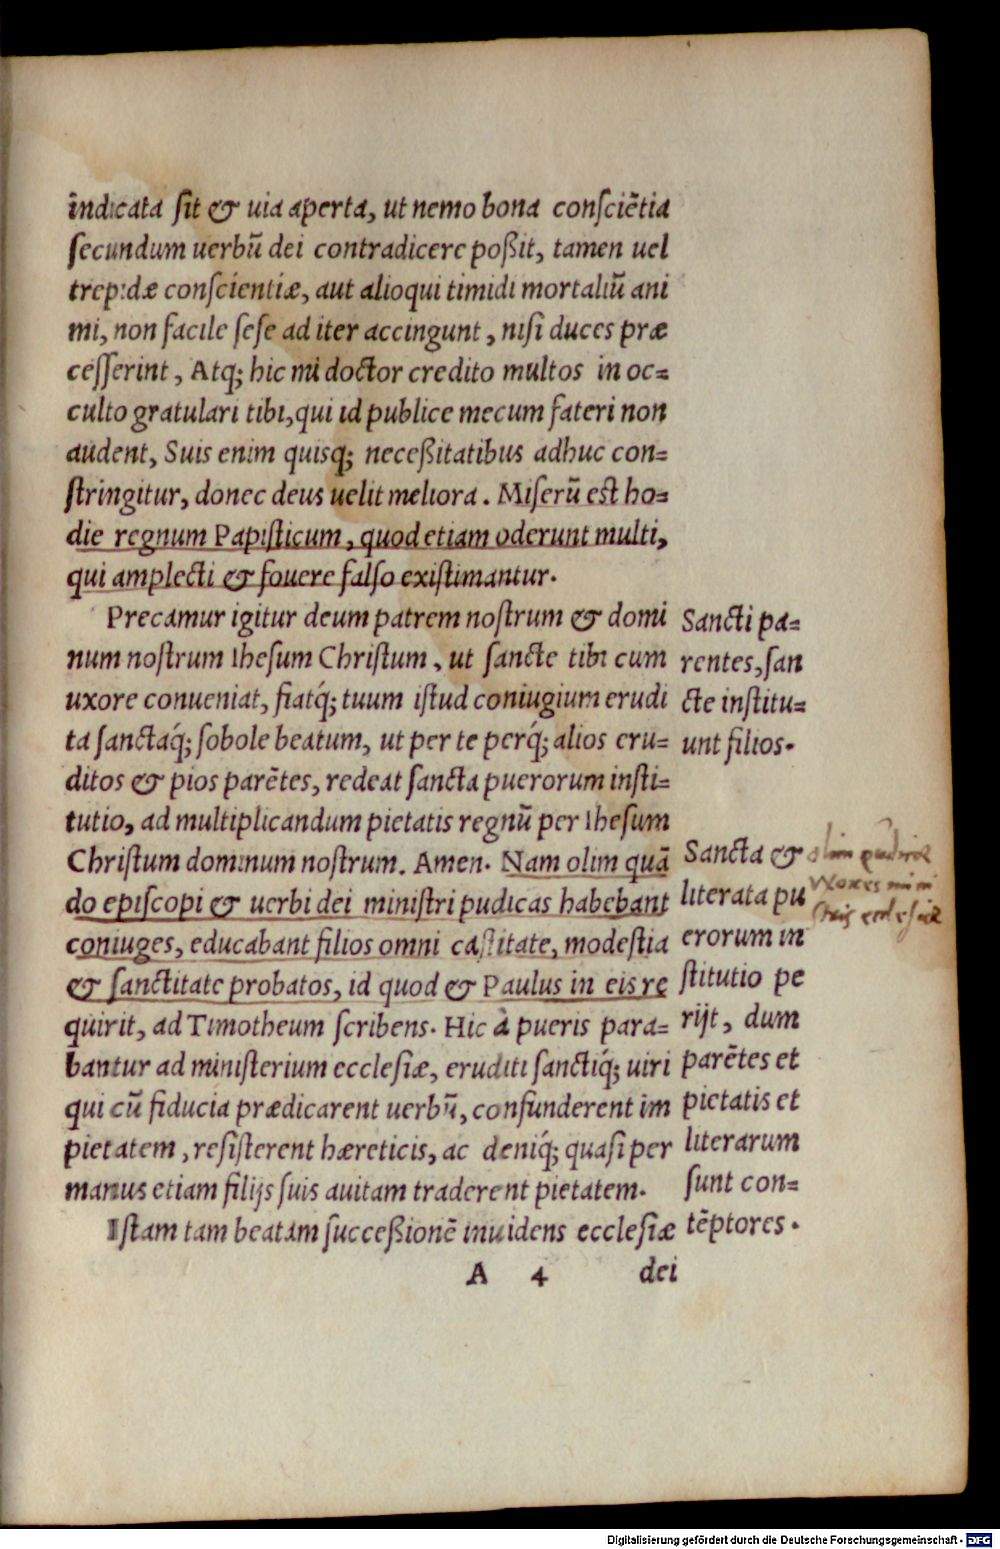 indicata sit & uia aperta, ut nemo bona consciẽtia
secundum uerbũ dei contradicere poßit, tamen uel
trepidæ conscientiæ, aut alioqui timidi mortaliũ ani
mi, non facile sese ad iter accingunt, nisi duces præ
cesserint, Atq; hic mi doctor credito multos in oc=
culto gratulari tibi, qui id publice mecum fateri non
audent, Suis enim quisq; neceßitatibus adhuc con=
stringitur, donec deus uelit meliora. Miserũ est ho=
die regnum Papisticum, quod etiam oderunt multi,
qui amplecti & fouere falso existimantur.
Precamur igitur deum patrem nostrum & domi
num nostrum Ihesum Christum, ut sancte tibi cum
uxore conueniat, fiatq́; tuum istud coniugium erudi
ta sanctaq́; sobole beatum, ut per te perq́; alios eru=
ditos & pios parẽtes, redeat sancta puerorum insti=
tutio, ad multiplicandum pietatis regnũ per Ihesum
Christum dominum nostrum. Amen. Nam olim quã
do episcopi & uerbi dei ministri pudicas habebant
coniuges, educabant filios omni castitate, modestia
& sanctitate probatos, id quod & Paulus in eis re
quirit, ad Timotheum scribens. Hic à pueris para=
bantur ad ministerium ecclesiæ, eruditi sanctiq́; uiri
qui cũ fiducia prædicarent uerbũ, confunderent im
pietatem, resisterent hæreticis, ac deniq́; quasi per
manus etiam filijs suis auitam traderent pietatem.
Istam tam beatam succeßionẽ inuidens ecclesiæ
A 4 dei
Sancti pa=
rentes, san
cte institu=
unt filios.
Sancta &
literata pu
erorum in
stitutio pe
rijt, dum
parẽtes et
pietatis et
literarum
sunt con=
tẽptores.
olim
Digitalisierung gefördert durch die Deutsche Forschungsgemeinschaft - DFG